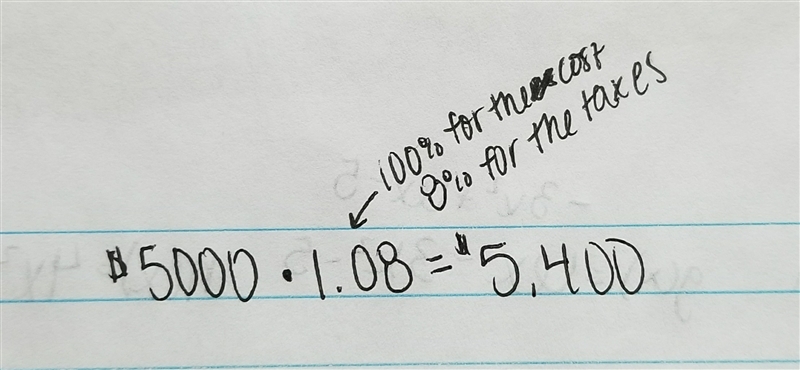 100% for the cost
8% for the taxes
$5000 · 1.08 = $5,400